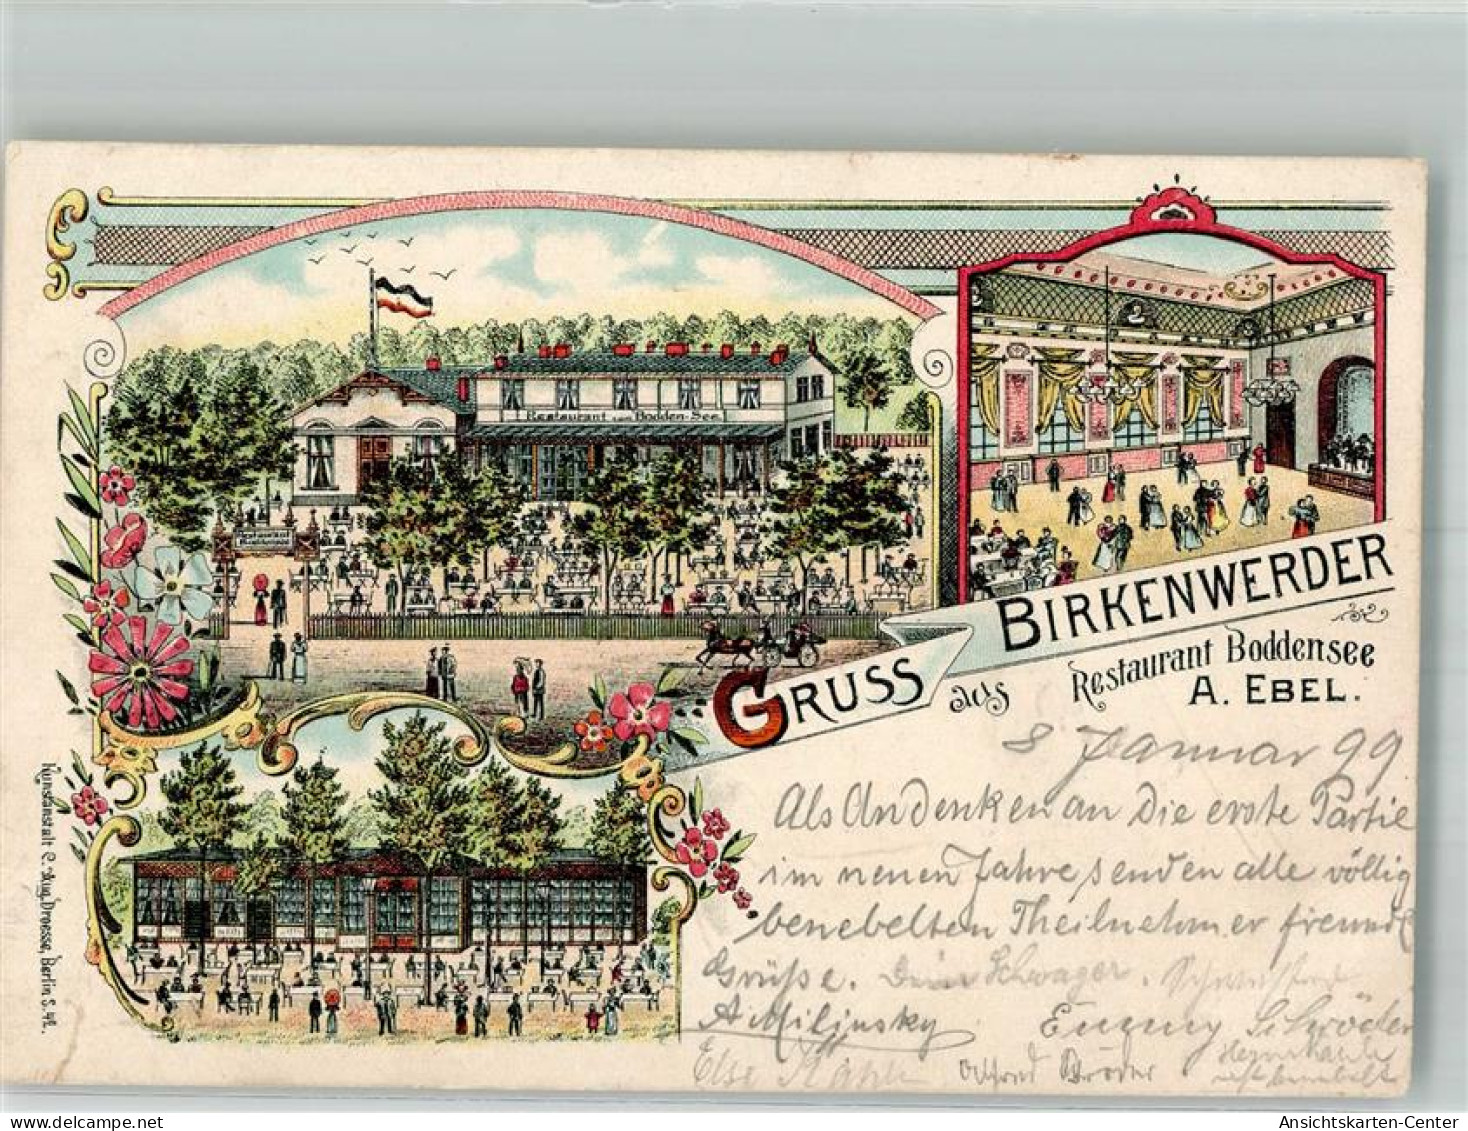 Restaurant zum Bodden-See
Restaurant
GRUSS aus BIRKENWERDER
Restaurant Boddensee
A. EBEL.
Kunstanstalt C. Aug. Droesse, Berlin S. 42.
8 Januar 99
Als Andenken an die erste Partie
im neuen Jahre, senden alle völlig
benebelten Theilnehmer freundl
Grüße. Dein Schwager.
A Milinsky
Else
Ansichtskarten-Center